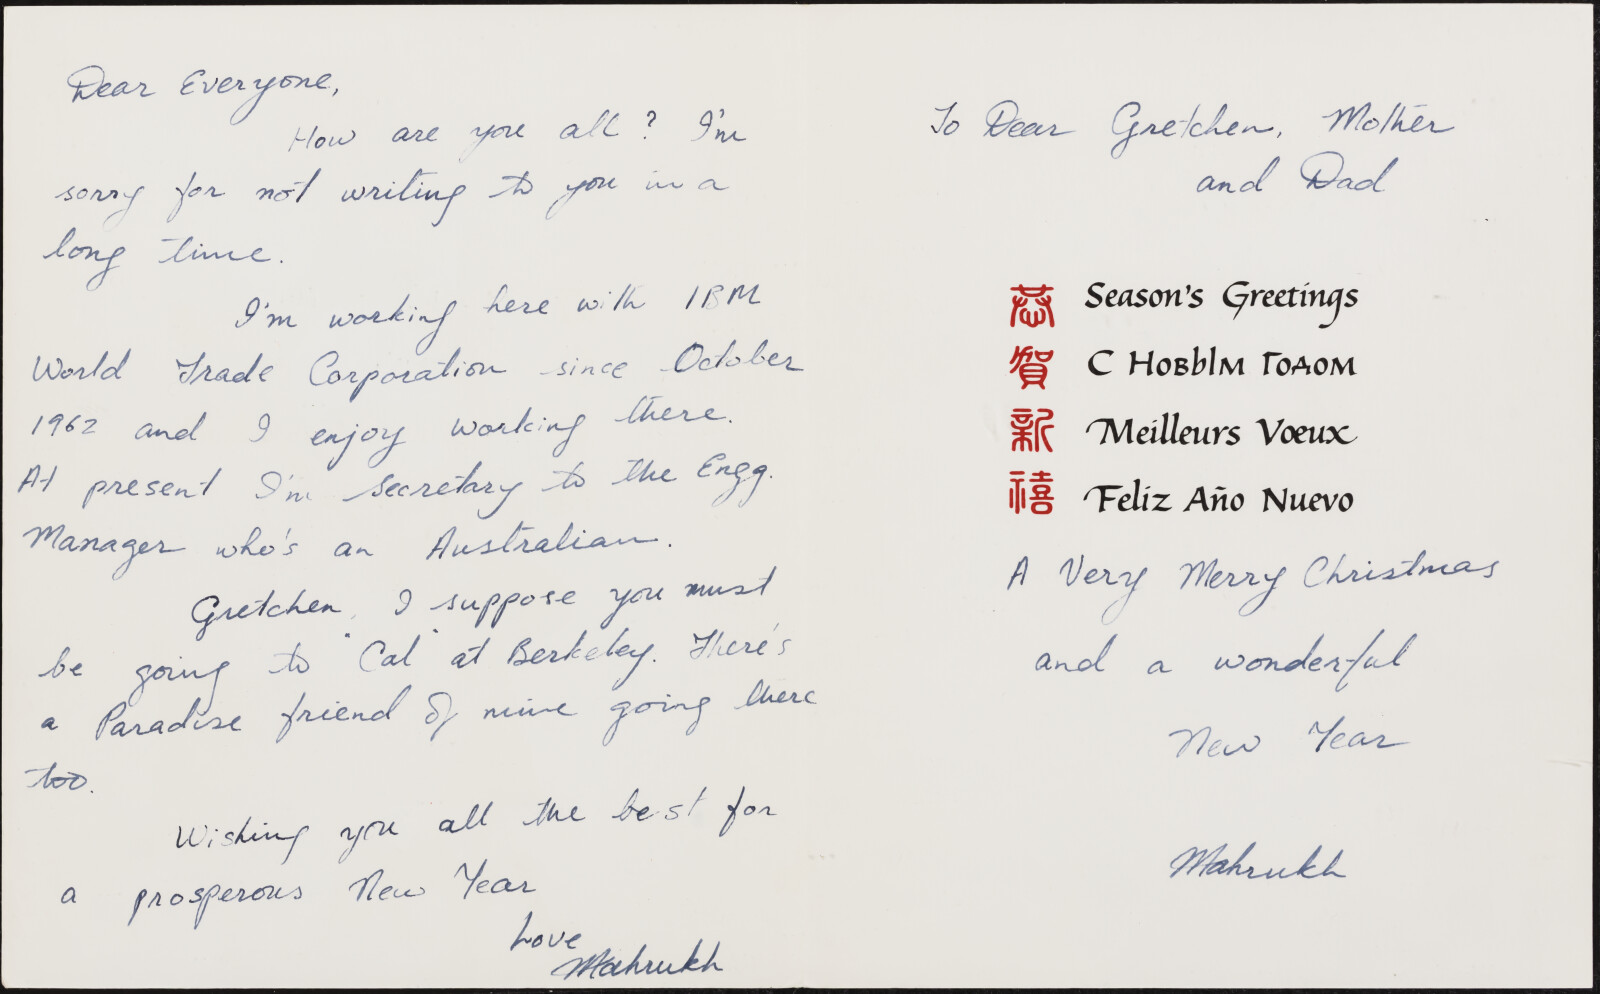 Dear Everyone,
How are you all? I'm
sorry for not writing to you in a
long time.
I'm working here with IBM
World Trade Corporation since October
1962 and I enjoy working there.
At present I'm Secretary to the Engg.
Manager who's an Australian.
Gretchen, I suppose you must
be going to "Cal" at Berkeley. There's
a Paradise friend of mine going there
too.
Wishing you all the best for
a prosperous New Year
Love
Mahrukh
To Dear Gretchen, Mother
and Dad
恭 Season's Greetings
賀 С Новым Годом
新 Meilleurs Vœux
禧 Feliz Año Nuevo
A Very Merry Christmas
and a wonderful
New Year
Mahrukh